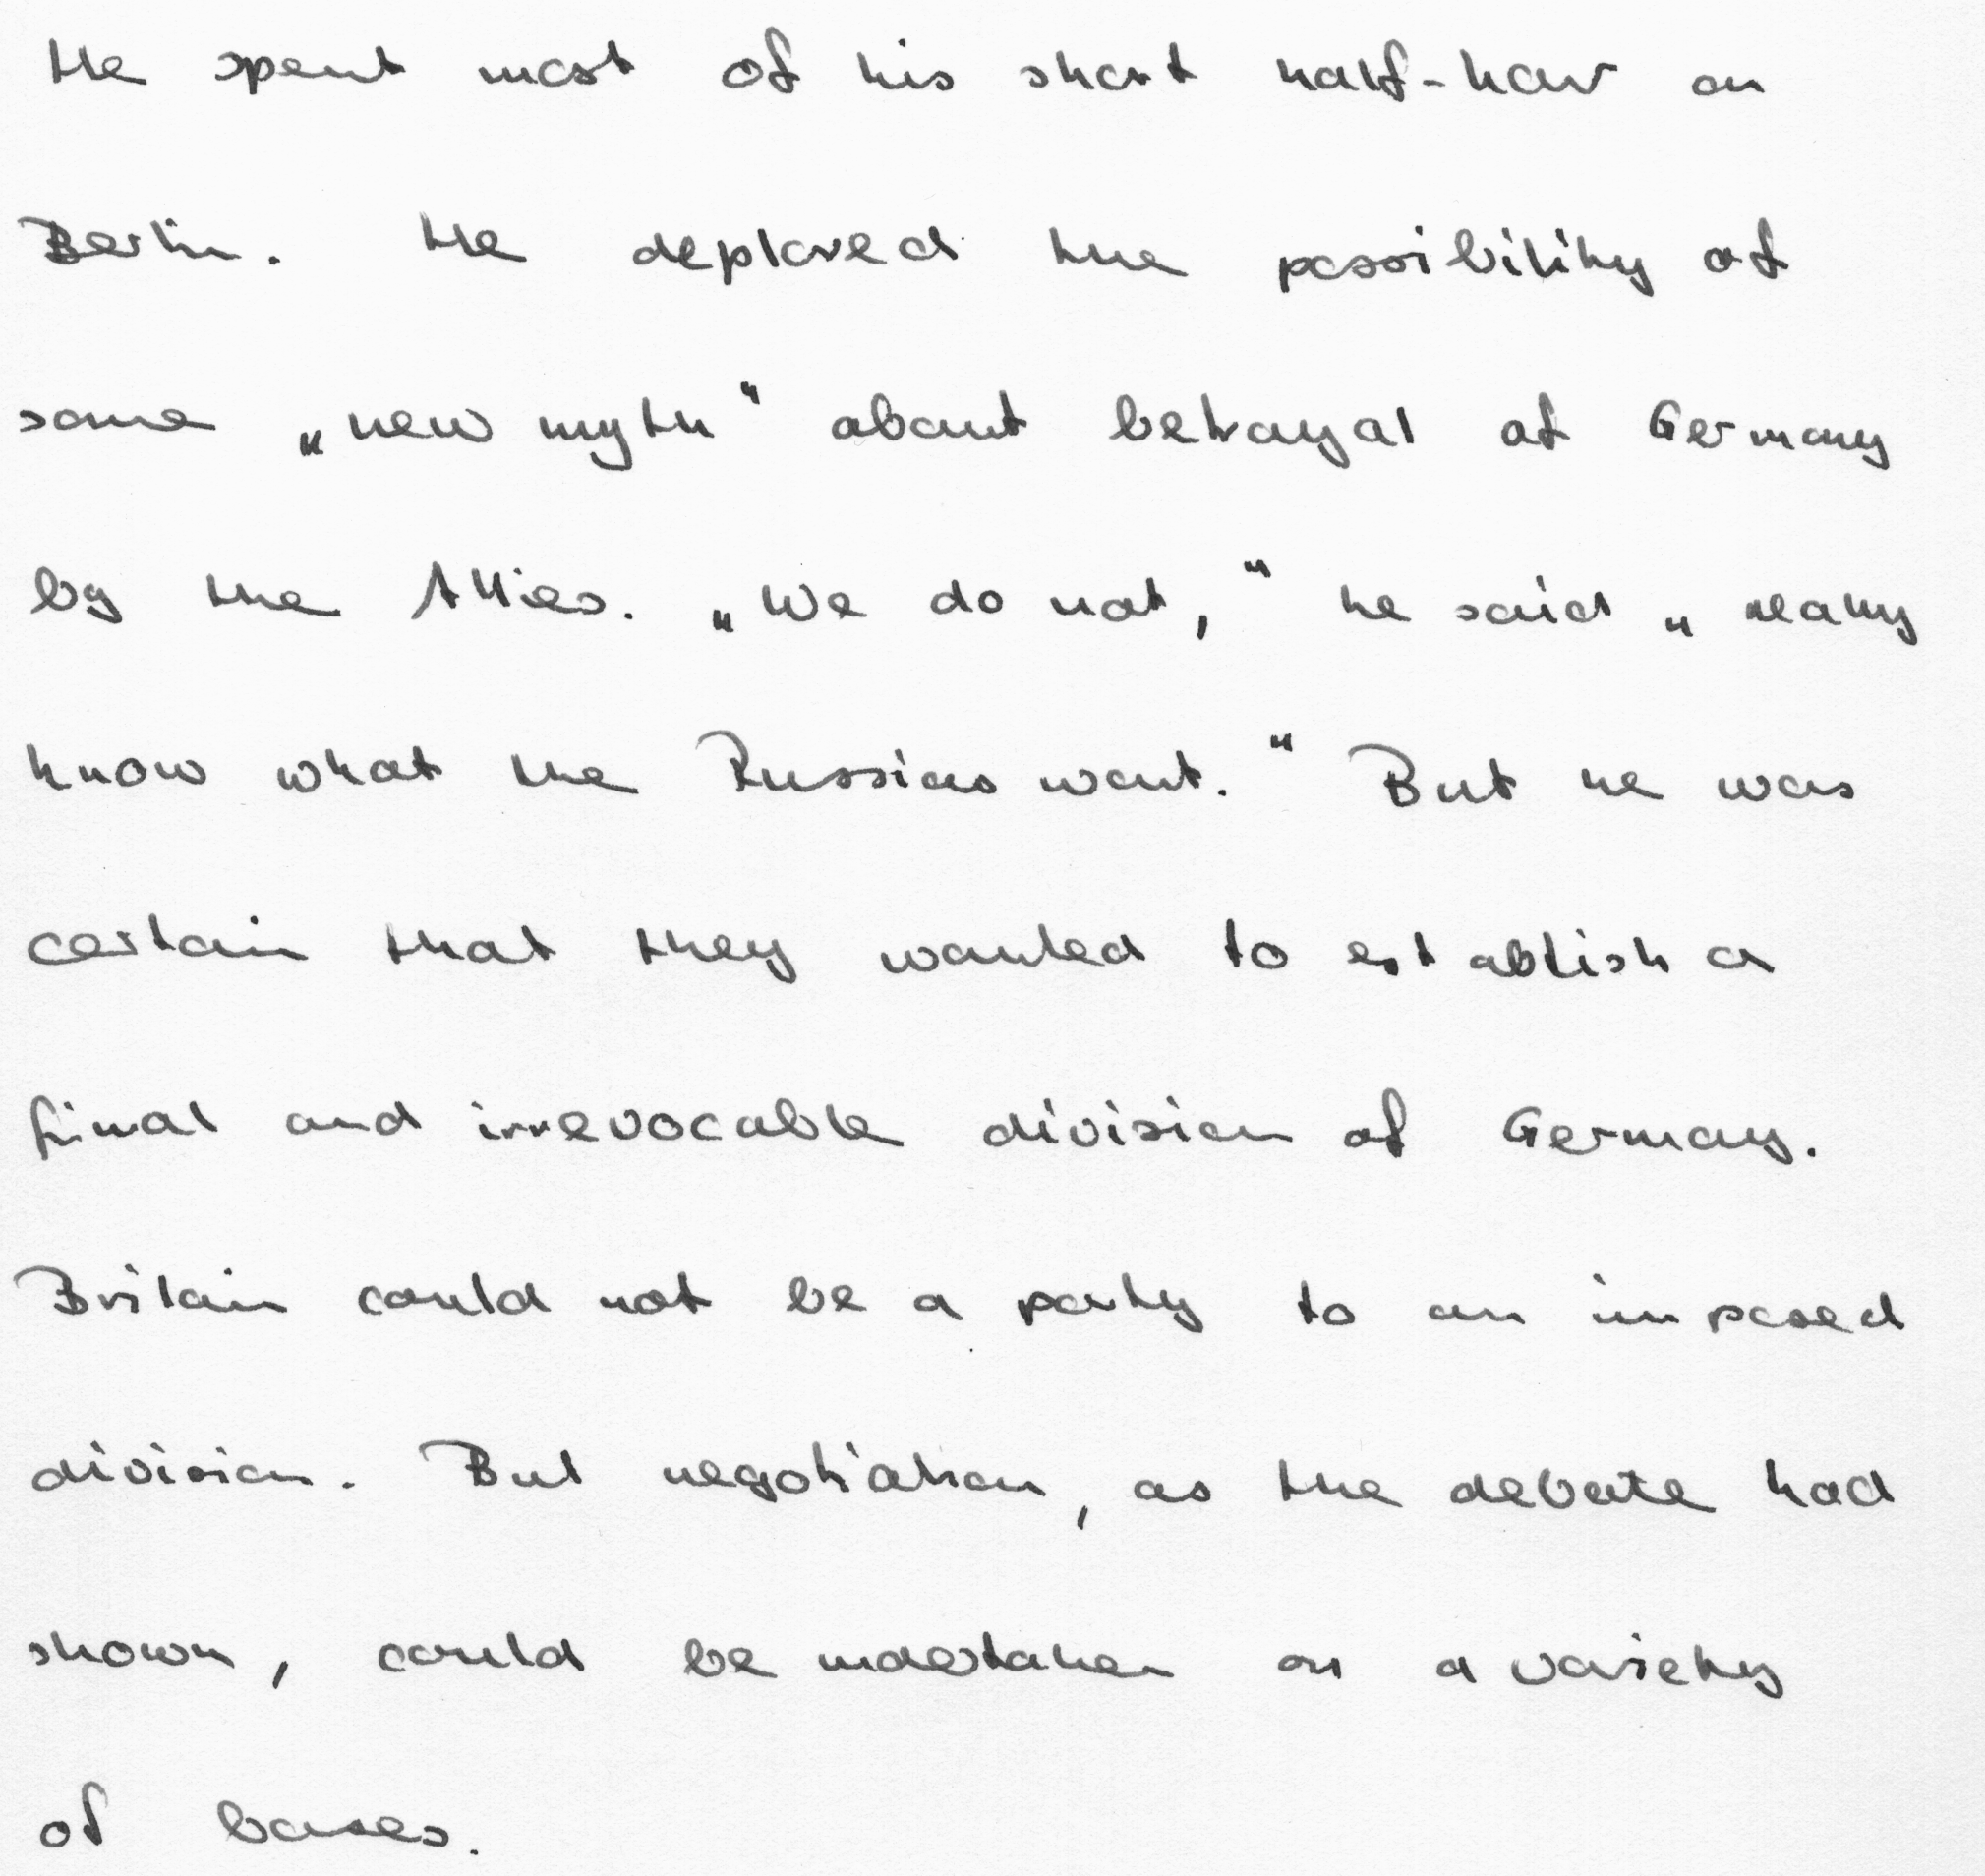 He spent most of his short half-hour on
Berlin. He deplored the possibility of
some „new myth“ about betrayal of Germany
by the Allies. „We do not,“ he said „really
know what the Russians want.“ But he was
certain that they wanted to establish a
final and irrevocable division of Germany.
Britain could not be a party to an imposed
division. But negotiation, as the debate had
shown, could be undertaken on a variety
of bases.